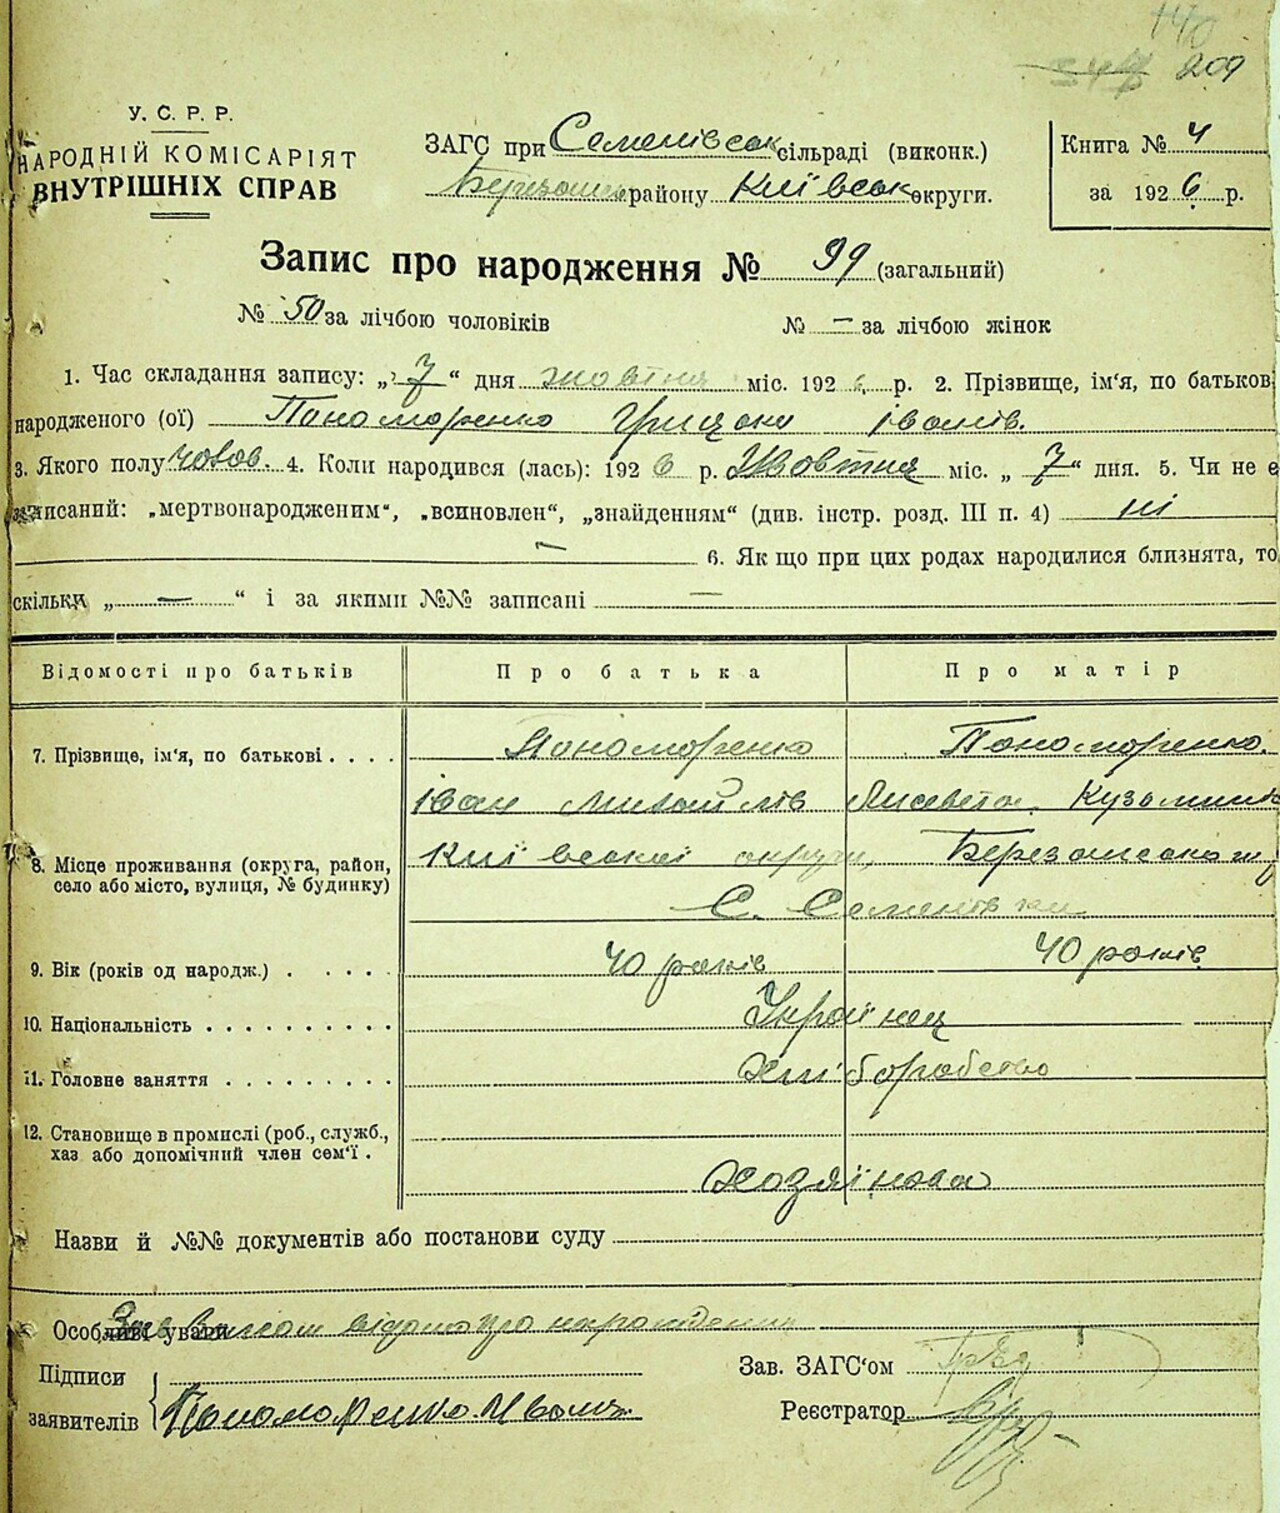 140
209
У. С. Р. Р.
НАРОДНІЙ КОМІСАРІЯТ
ВНУТРІШНІХ СПРАВ
ЗАГС при Семенівськ сільраді (виконк.)
Березанськ району Київськ округи.
Книга № 4
за 1926 р.
Запис про народження № 99 (загальний)
№ 50 за лічбою чоловіків № — за лічбою жінок
1. Час складання запису: „ 7 “ дня жовтня міс. 1926 р. 2. Прізвище, ім‘я, по батькові
народженого (ої) Пономоренко Грицько Іванів.
3. Якого полу чолов. 4. Коли народився (лась): 1926 р. Жовтня міс. „ 7 “ дня. 5. Чи не є
записаний: „мертвонародженим“, „всиновлен“, „знайденням“ (див. інстр. розд. III п. 4) ні
— 6. Як що при цих родах народилися близнята, то
скільки „ — “ і за якими №№ записані —
Відомості про батьків Про батька Про матір
7. Прізвище, ім‘я, по батькові . . . . Пономоренко Пономоренко
Іван Михайлів Лисавета Кузьмин
8. Місце проживання (округа, район,
село або місто, вулиця, № будинку)
Київської округи, Березанського
С. Семенівки
9. Вік (років од народж.) . . . . . 40 років 40 років
10. Національність . . . . . . . . . . Українец
11. Головне заняття . . . . . . . . . Хліборобство
12. Становище в промислі (роб., служб.,
хаз або допомічний член сем‘ї .
Хозяїнова
Назви й №№ документів або постанови суду
Особливі уваги відома про народження
Підписи
заявителів Пономоренко Иван
Зав. ЗАГС‘ом
Реєстратор